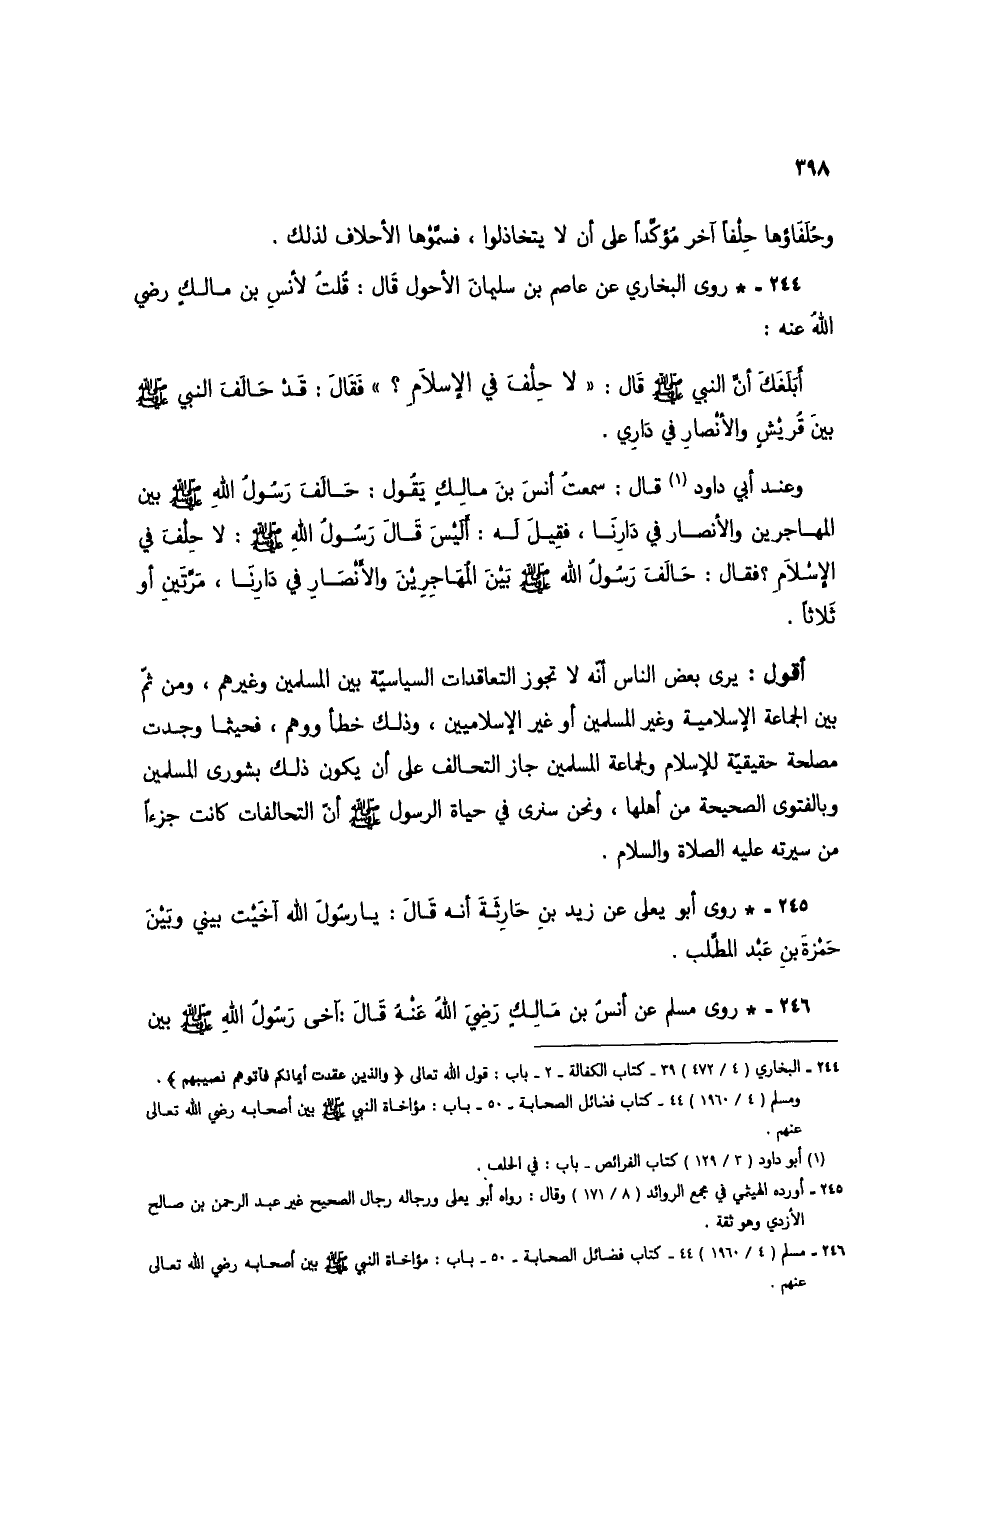 ٣٩٨
وحُلَفَاؤها حِلْفاً آخر مُؤكَّداً على أن لا يتخاذلوا ، فسمَّوْها الأحلاف لذلك .
٢٤٤ ـ * روى البخاري عن عاصم بن سليمانَ الأحول قَال : قُلتُ لأنسِ بن مـالـكٍ رضي
اللهُ عنه :
أَبَلَغَكَ أنَّ النبي ﷺ قَال : « لا حِلْفَ في الإسلاَمِ ؟ » فَقَالَ : قَـدْ حَـالَفَ النبي ﷺ
بينَ قُريْشٍ والأنْصارِ في دَارِي .
وعنـد أبي داود (١) قـال : سمعتُ أنسَ بنَ مـالِـكٍ يَقُـول : حَـالَفَ رَسُـولُ اللهِ ﷺ بين
المهـاجرين والأنصـار في دَارِنَـا ، فقِيـلَ لَـه : أَلَيْسَ قَـالَ رَسُـولُ اللهِ ﷺ : لا حِلْفَ في
الإسْـلاَمِ ؟فقـال : حَـالَفَ رَسُولُ الله ﷺ بَيْنَ الْمُهَـاجِرِيْنَ والأَنْصَـارِ في دَارِنَـا ، مَرَّتَينِ أو
ثَلاثاً .
أقول : يرى بعض الناس أنّه لا تجوز التعاقدات السياسيّة بين المسلمين وغيرهم ، ومن ثمّ
بين الجماعة الإسلاميـة وغير المسلمين أو غير الإسلاميين ، وذلـك خطأ ووهم ، فحيثمـا وجـدت
مصلحة حقيقيّة للإسلام ولجماعة المسلمين جاز التحـالف على أن يكون ذلـك بشورى المسلمين
وبالفتوى الصحيحة من أهلها ، ونحن سنرى في حياة الرسول ﷺ أنّ التحالفات كانت جزءاً
من سيرته عليه الصلاة والسلام .
٢٤٥ ـ * روى أبو يعلى عن زيد بنِ حَارِثَـةَ أنـه قَـالَ : يـارسُولَ الله آخَيْت بيني وبَيْنَ
حَمْزةَ بنِ عَبْد المطَّلب .
٢٤٦ ـ * روى مسلم عن أنسُ بن مَـالِـكٍ رَضِيَ اللهُ عَنْـهُ قَـالَ :آخى رَسُولُ اللهِ ﷺ بين
٢٤٤ ـ البخاري ( ٤ / ٤٧٢ ) ٣٩ ـ كتاب الكفالة ـ ٢ ـ باب : قول الله تعالى ﴿ والذين عقدت أيمانكم فآتوهم نصيبهم ﴾ .
ومسلم ( ٤ / ١٩٦٠ ) ٤٤ ـ كتاب فضائل الصحابـة ـ ٥٠ ـ بـاب : مؤاخـاة النبي ﷺ بين أصحابـه رضي الله تعـالى
عنهم .
(١) أبو داود ( ٣ / ١٢٩ ) كتاب الفرائص ـ باب : في الحلف .
٢٤٥ ـ أورده الهيثمي في مجمع الروائد ( ٨ / ١٧١ ) وقال : رواه أبو يعلى ورجاله رجال الصحيح غير عبـد الرحمن بن صـالح
الأزدي وهو ثقة .
٢٤٦ ـ مسلم ( ٤ / ١٩٦٠ ) ٤٤ ـ كتاب فضائل الصحابـة ـ ٥٠ ـ بـاب : مؤاخـاة النبي ﷺ بين أصحابـه رضي الله تعـالى
عنهم .